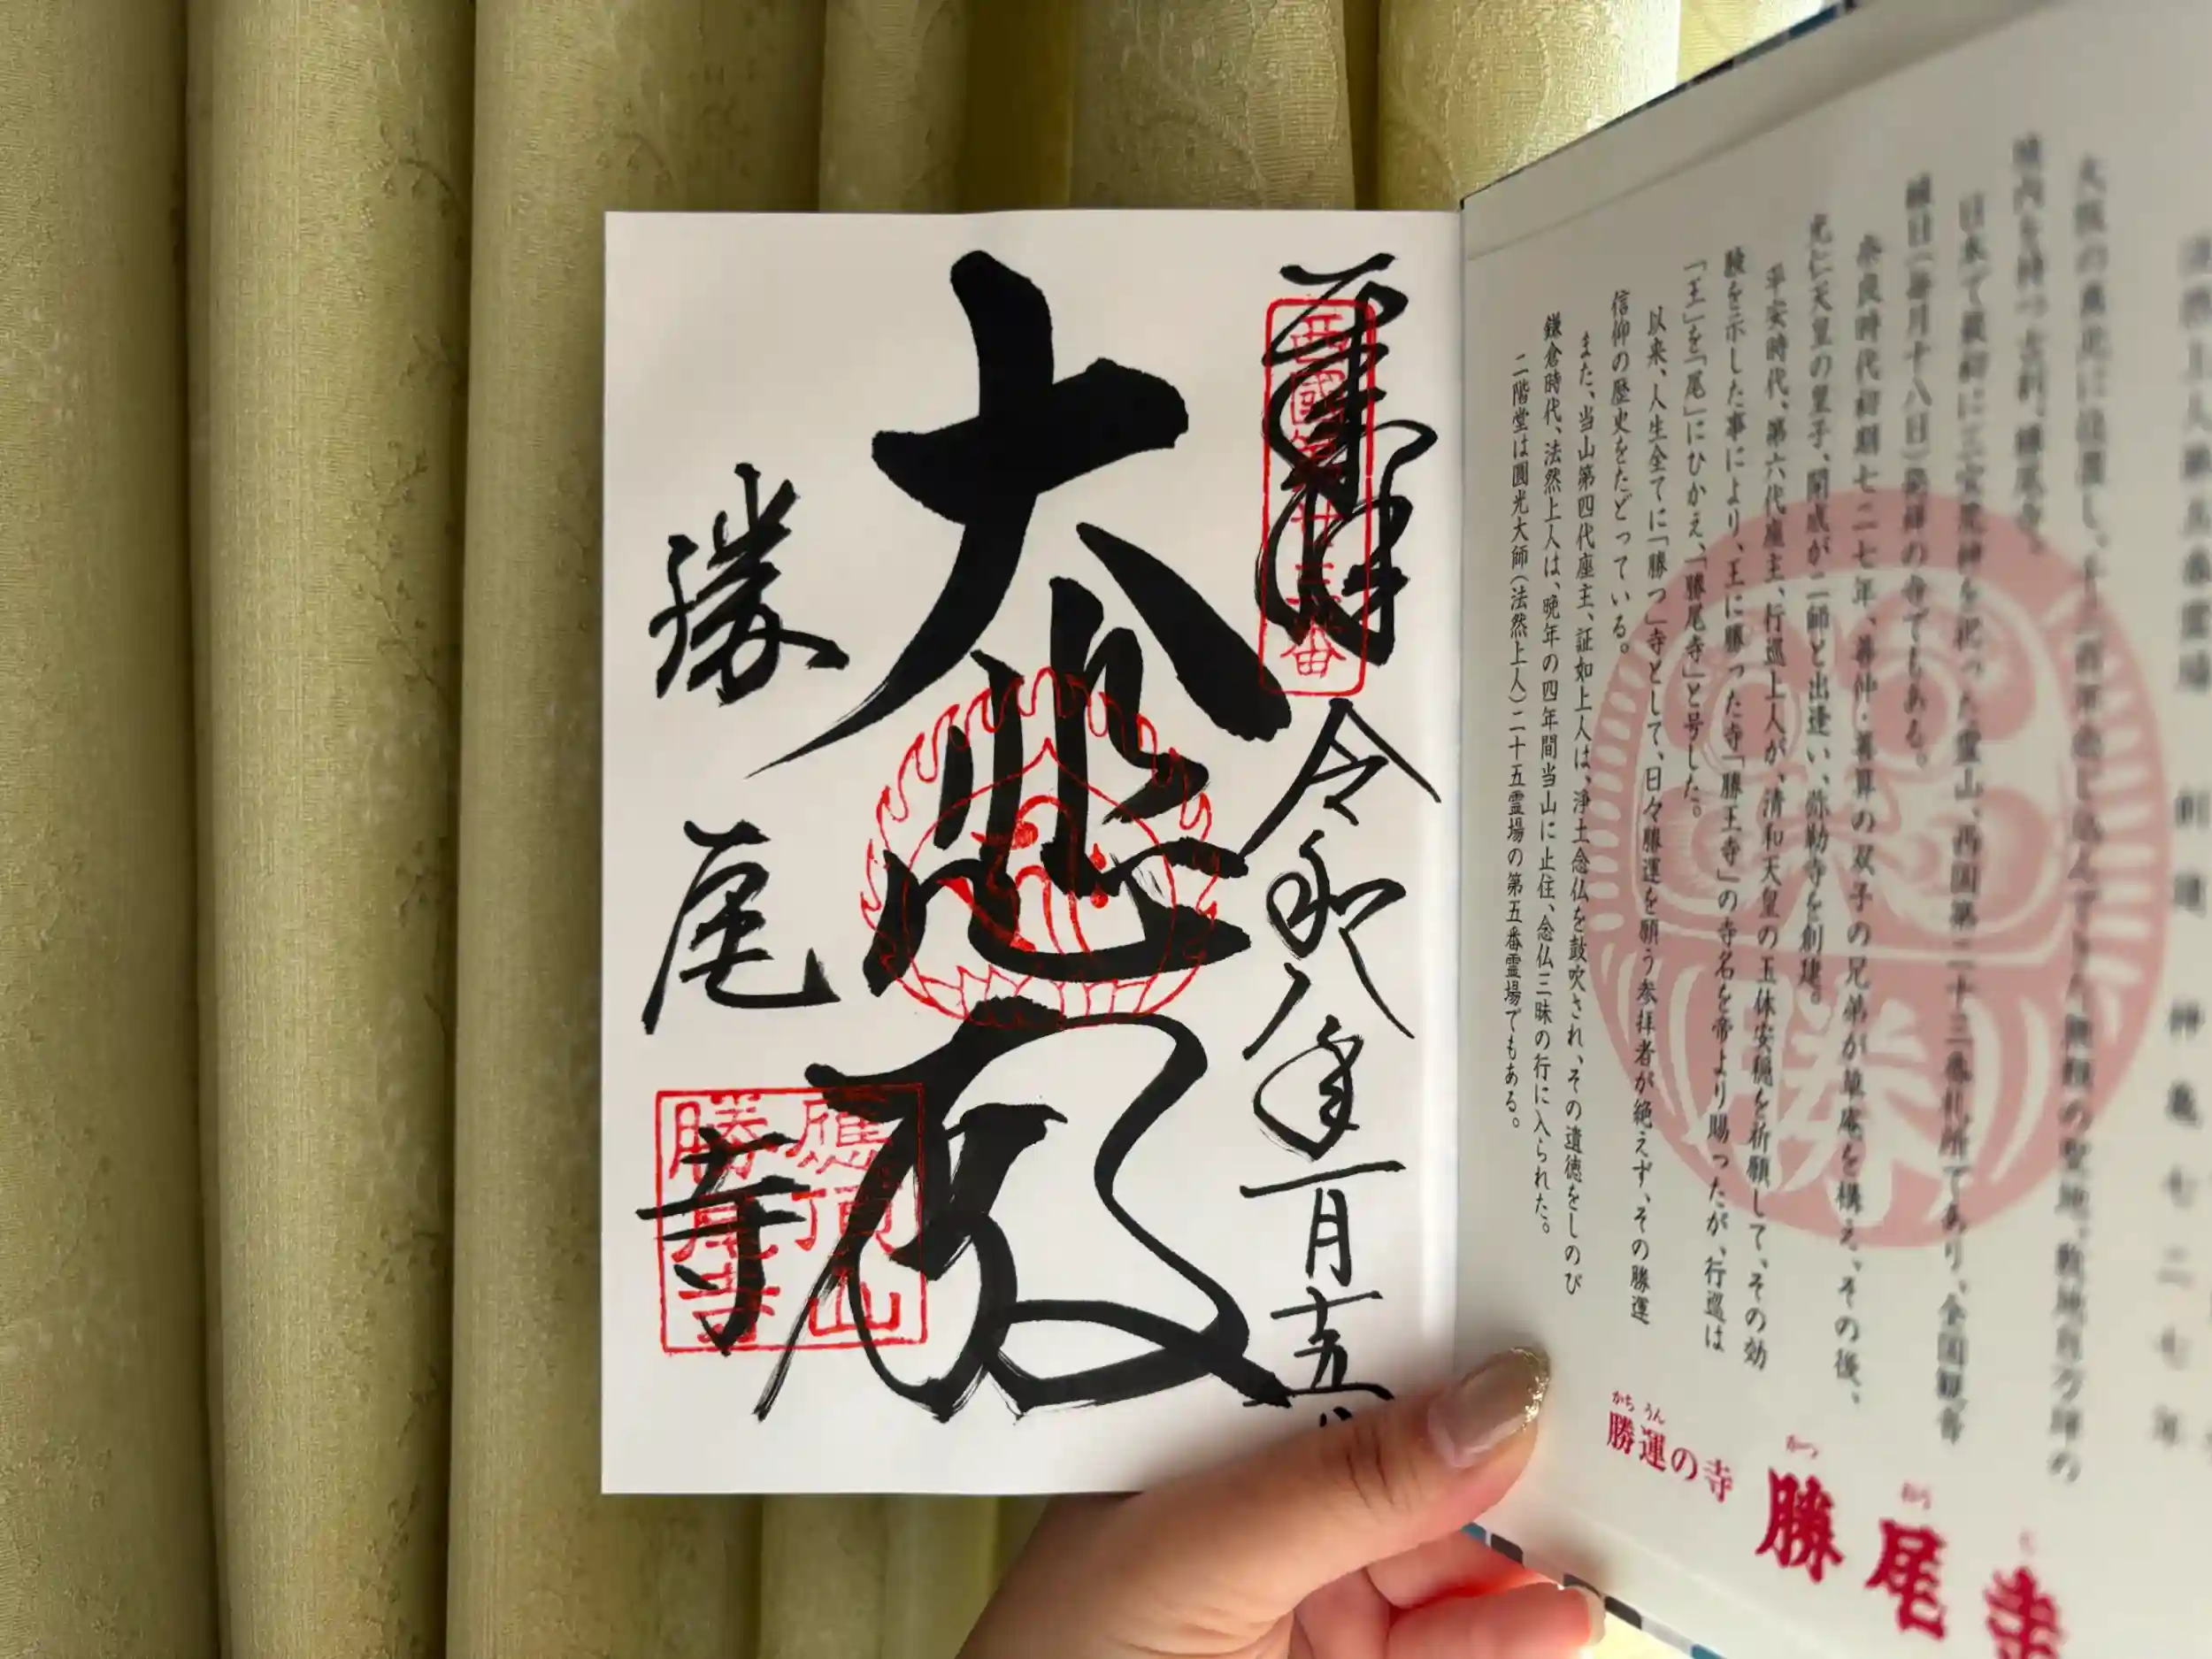 大阪の真北に位置し、
境内を持つ古刹、勝尾寺。
日本で最初に三宝荒神を祀った霊山、西国第二十三番札所であり、全国観音
縁日(毎月十八日)発祥の寺でもある。
奈良時代初期七二七年、善仲・善算の双子の兄弟が草庵を構え、その後、
光仁天皇の皇子、開成が二師と出逢い、弥勒寺を創建。
平安時代、第六代座主、行巡上人が、清和天皇の玉体安穏を祈願して、その効
験を示した事により、王に勝った寺「勝王寺」の寺名を帝より賜ったが、行巡は
「王」を「尾」にひかえ、「勝尾寺」と号した。
以来、人生全てに「勝つ」寺として、日々勝運を願う参拝者が絶えず、その勝運
信仰の歴史をたどっている。
また、当山第四代座主、証如上人は、浄土念仏を鼓吹され、その遺徳をしのび
鎌倉時代、法然上人は、晩年の四年間当山に止住、念仏三昧の行に入られた。
二階堂は圓光大師(法然上人)二十五霊場の第五番霊場でもある。
勝
かちうん
勝運の寺
かつおうじ
勝尾寺
奉拝
西國第廿三番
令和八年一月十五日
大悲殿
勝尾寺
應頂山
勝尾寺